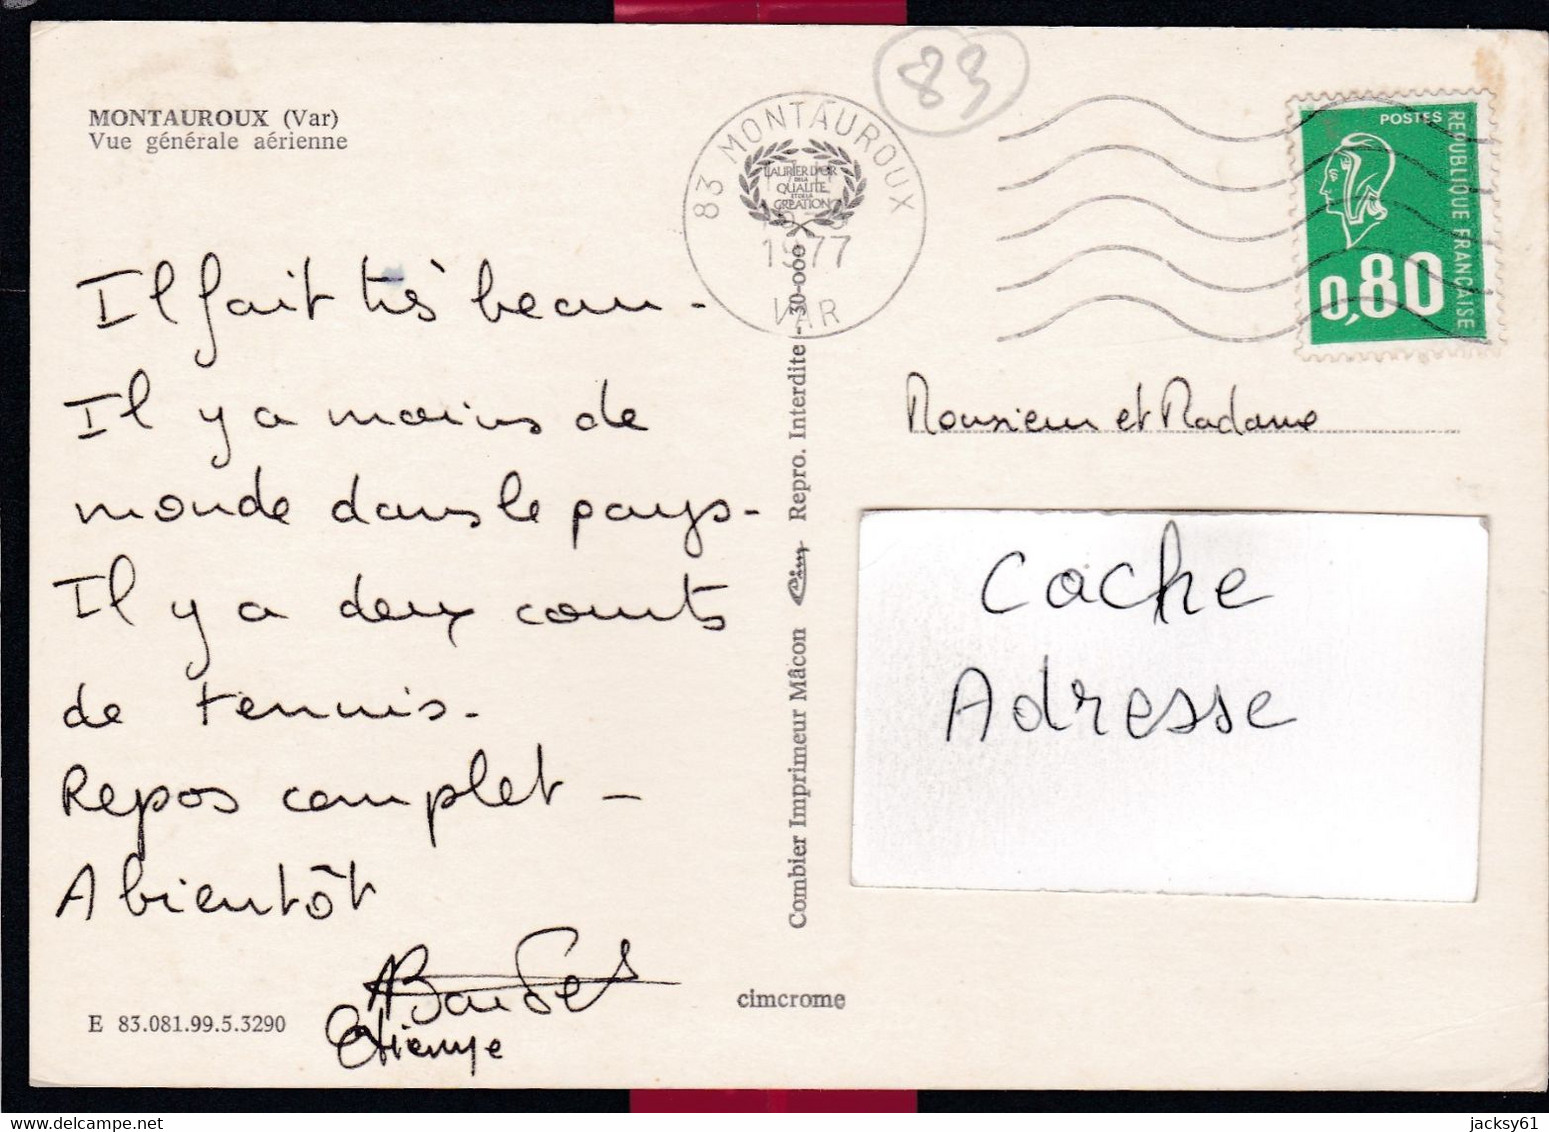 MONTAUROUX (Var)
Vue générale aérienne
Il fait très beau -
Il y a moins de
monde dans le pays -
Il y a deux courts
de tennis.
Repos complet -
A bientôt
Etienne
E 83.081.99.5.3290
Combier Imprimeur Mâcon Cim Repro. Interdite - 30-000
cimcrome
83 MONTAUROUX
LAURIER D'OR
DE LA
QUALITE
ET DE LA
CREATION
1977
VAR
83
POSTES
REPUBLIQUE FRANÇAISE
0,80
Monsieur et Madame
Cache
Adresse
jacksy61